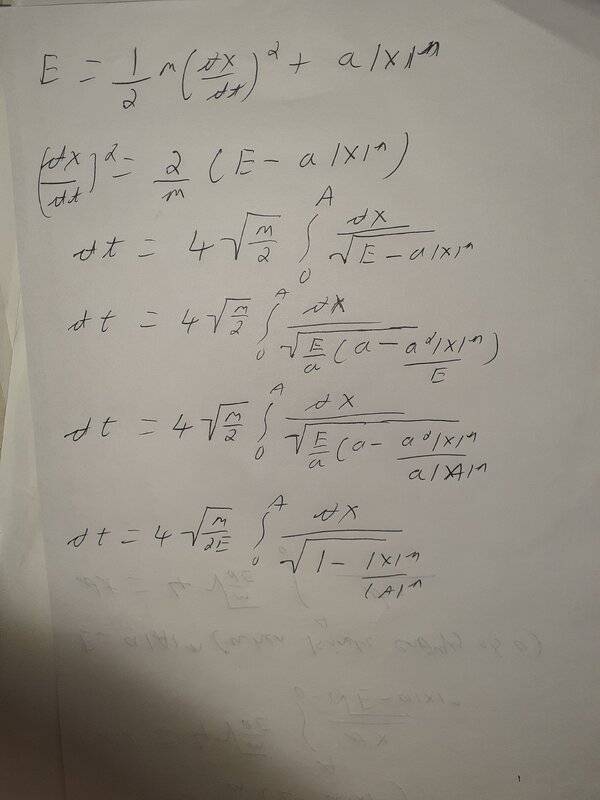 E = 1/2 m (dx/dt)^2 + a|x|^n
(dx/dt)^2 = 2/m (E - a|x|^n)
dt = 4 √(m/2) ∫_0^A dx / √(E - a|x|^n)
dt = 4 √(m/2) ∫_0^A dx / √(E/a (a - a^2|x|^n / E))
dt = 4 √(m/2) ∫_0^A dx / √(E/a (a - a^2|x|^n / a|A|^n
dt = 4 √(m/2E) ∫_0^A dx / √(1 - |x|^n / |A|^n)